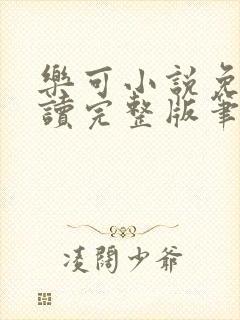 樂可小說免
讀完整版筆
凌闊少爺